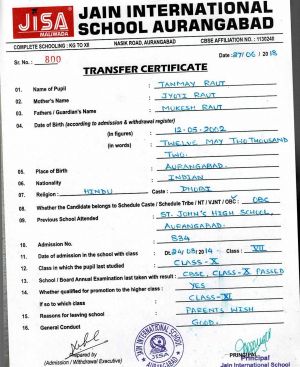 JISA
MALIWADA
JAIN INTERNATIONAL
SCHOOL AURANGABAD
COMPLETE SCHOOLING : KG TO XII NASIK ROAD, AURANGABAD CBSE AFFILIATION NO. : 1130240
Sr. No. : 800 Date : 27/06/2018
TRANSFER CERTIFICATE
01. Name of Pupil : TANMAY RAUT
02. Mother's Name : JYOTI RAUT
03. Fathers / Guardian's Name : MUKESH RAUT
04. Date of Birth (according to admission & withdrawal register)
(in figures) : 12-05-2002
(in words) : TWELVE MAY TWO THOUSAND
TWO.
05. Place of Birth : AURANGABAD.
06. Nationality : INDIAN
07. Religion : HINDU Caste : DHOBI
08. Whether the Candidate belongs to Schedule Caste / Schedule Tribe / NT / VJNT / OBC : OBC
09. Previous School Attended : ST. JOHN'S HIGH SCHOOL,
AURANGABAD.
10. Admission No. : 834
11. Date of admission in the school with class : Dt. 24/03/2014 Class : VII
12. Class in which the pupil last studied : CLASS-X
13. School / Board Annual Examination last taken with result : CBSE, CLASS-X PASSED
14. Whether qualified for promotion to the higher class : YES
If so to which class : CLASS-XI
15. Reasons for leaving school : PARENTS WISH
16. General Conduct : GOOD.
Prepared by
(Admission / Withdrawal Executive)
JAIN INTERNATIONAL SCHOOL
JISA
AURANGABAD
PRINCIPAL
Principal
Jain International School